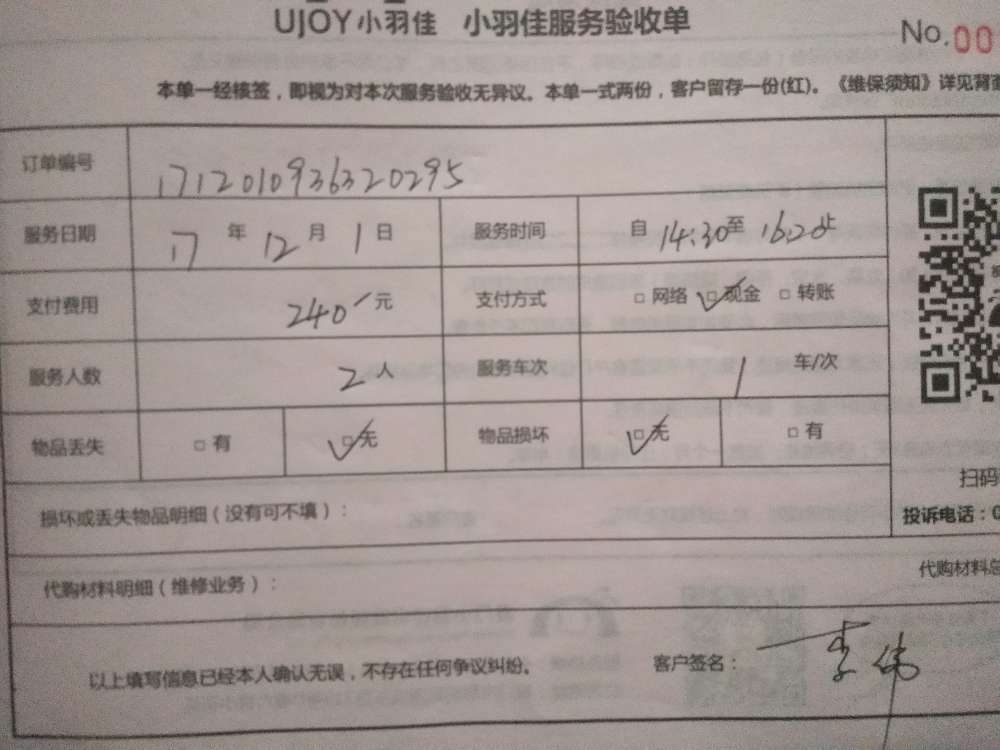 UJOY小羽佳 小羽佳服务验收单
No.00
本单一经核签，即视为对本次服务验收无异议。本单一式两份，客户留存一份(红)。《维保须知》详见背
订单编号 1712010936320295
服务日期 17 年 12 月 1 日 服务时间 自 14:30 至 16:20 止
支付费用 240 元 支付方式 □ 网络 ☑ 现金 □ 转账
服务人数 2 人 服务车次 1 车/次
物品丢失 □ 有 ☑ 无 物品损坏 ☑ 无 □ 有
扫码
损坏或丢失物品明细（没有可不填）：
投诉电话：0
代购材料明细（维修业务）：
代购材料总
以上填写信息已经本人确认无误，不存在任何争议纠纷。 客户签名： 李伟